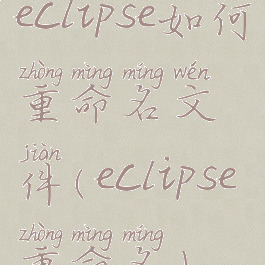 eclipse如何
zhòng mìng míng wén
重命名文
jiàn
件(eclipse
zhòng mìng míng
重命名)